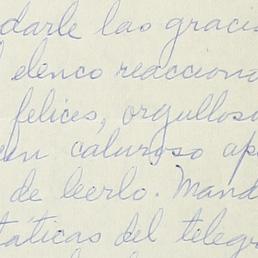 darle las gracia
elenco reacciona
felices, orgulloso
en caluroso ap
de leerlo. Mand
táticas del telegr